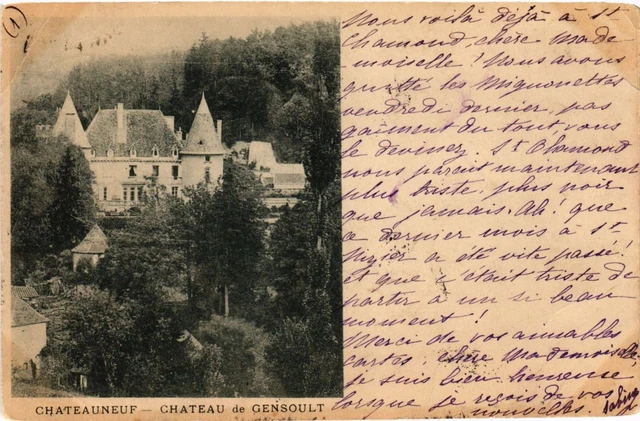 (1)
Nous voilà déjà à St
Chamond, chère Made
moiselle! Nous avons
quitté les Mignonettes
vendredi dernier, pas
gaiement du tout, vous
le devinez. St Chamond
nous paraît maintenant
plus triste, plus noir
que jamais. Ah! que
ce dernier mois à St
Nizier a été vite passé!
et que c'était triste de
partir à un si beau
moment!
Merci de vos aimables
cartes, chère Mademoiselle,
je suis bien heureuse
lorsque je reçois de vos
nouvelles.
CHATEAUNEUF — CHATEAU de GENSOULT